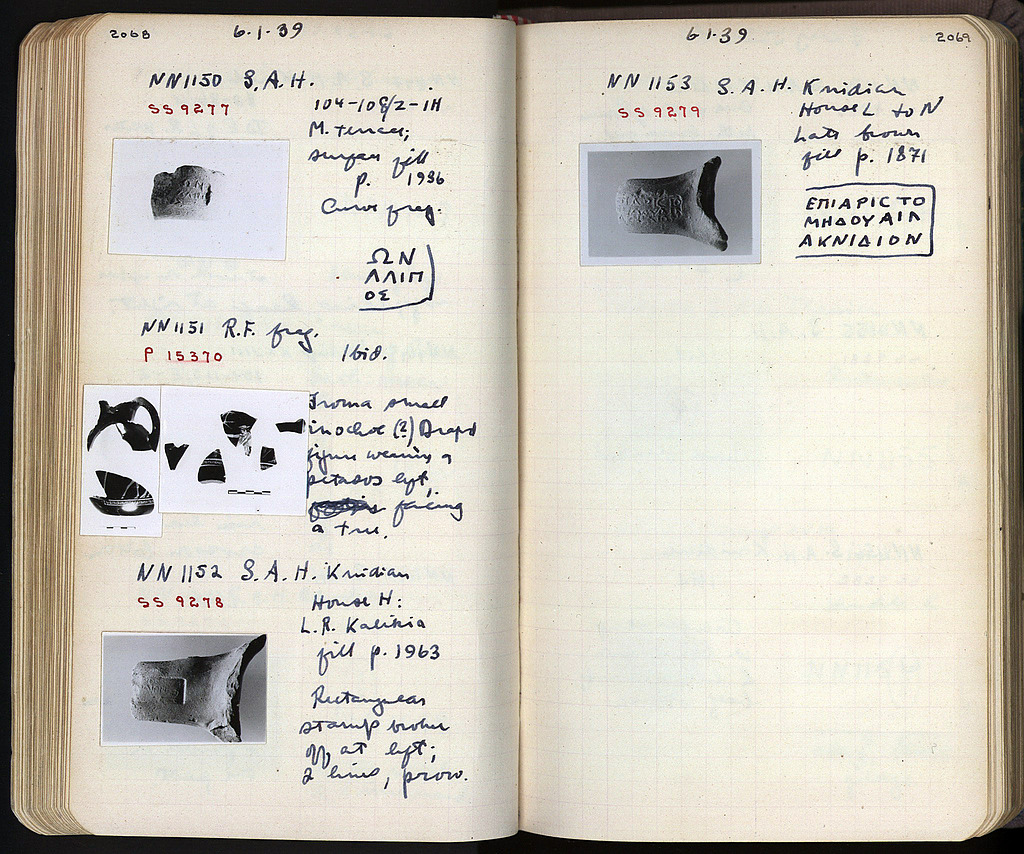 2068
6·1·39
NN1150 S.A.H.
SS 9277
M. terrace;
surface fill
p. 1936
Curve frag.
ΩΝ
ΛΛΙΠ
ΟΣ
NN1151 R.F. frag.
P 15370
Ibid.
From a small
oinochoe (?) Draped
figure wearing a
petasos left,
facing
a tree.
NN1152 S.A.H. Knidian
SS 9278
House H:
L.R. Kalikia
fill p. 1963
Rectangular
stamp broken
off at left;
2 lines, prow.
6·1·39
2069
NN1153 S.A.H. Knidian
SS 9279
House L to N
Late brown
fill p. 1871
ΕΠΙΑΡΙCΤΟ
ΜΗΔΟΥΑΙΛ
ΑΚΝΙΔΙΟΝ